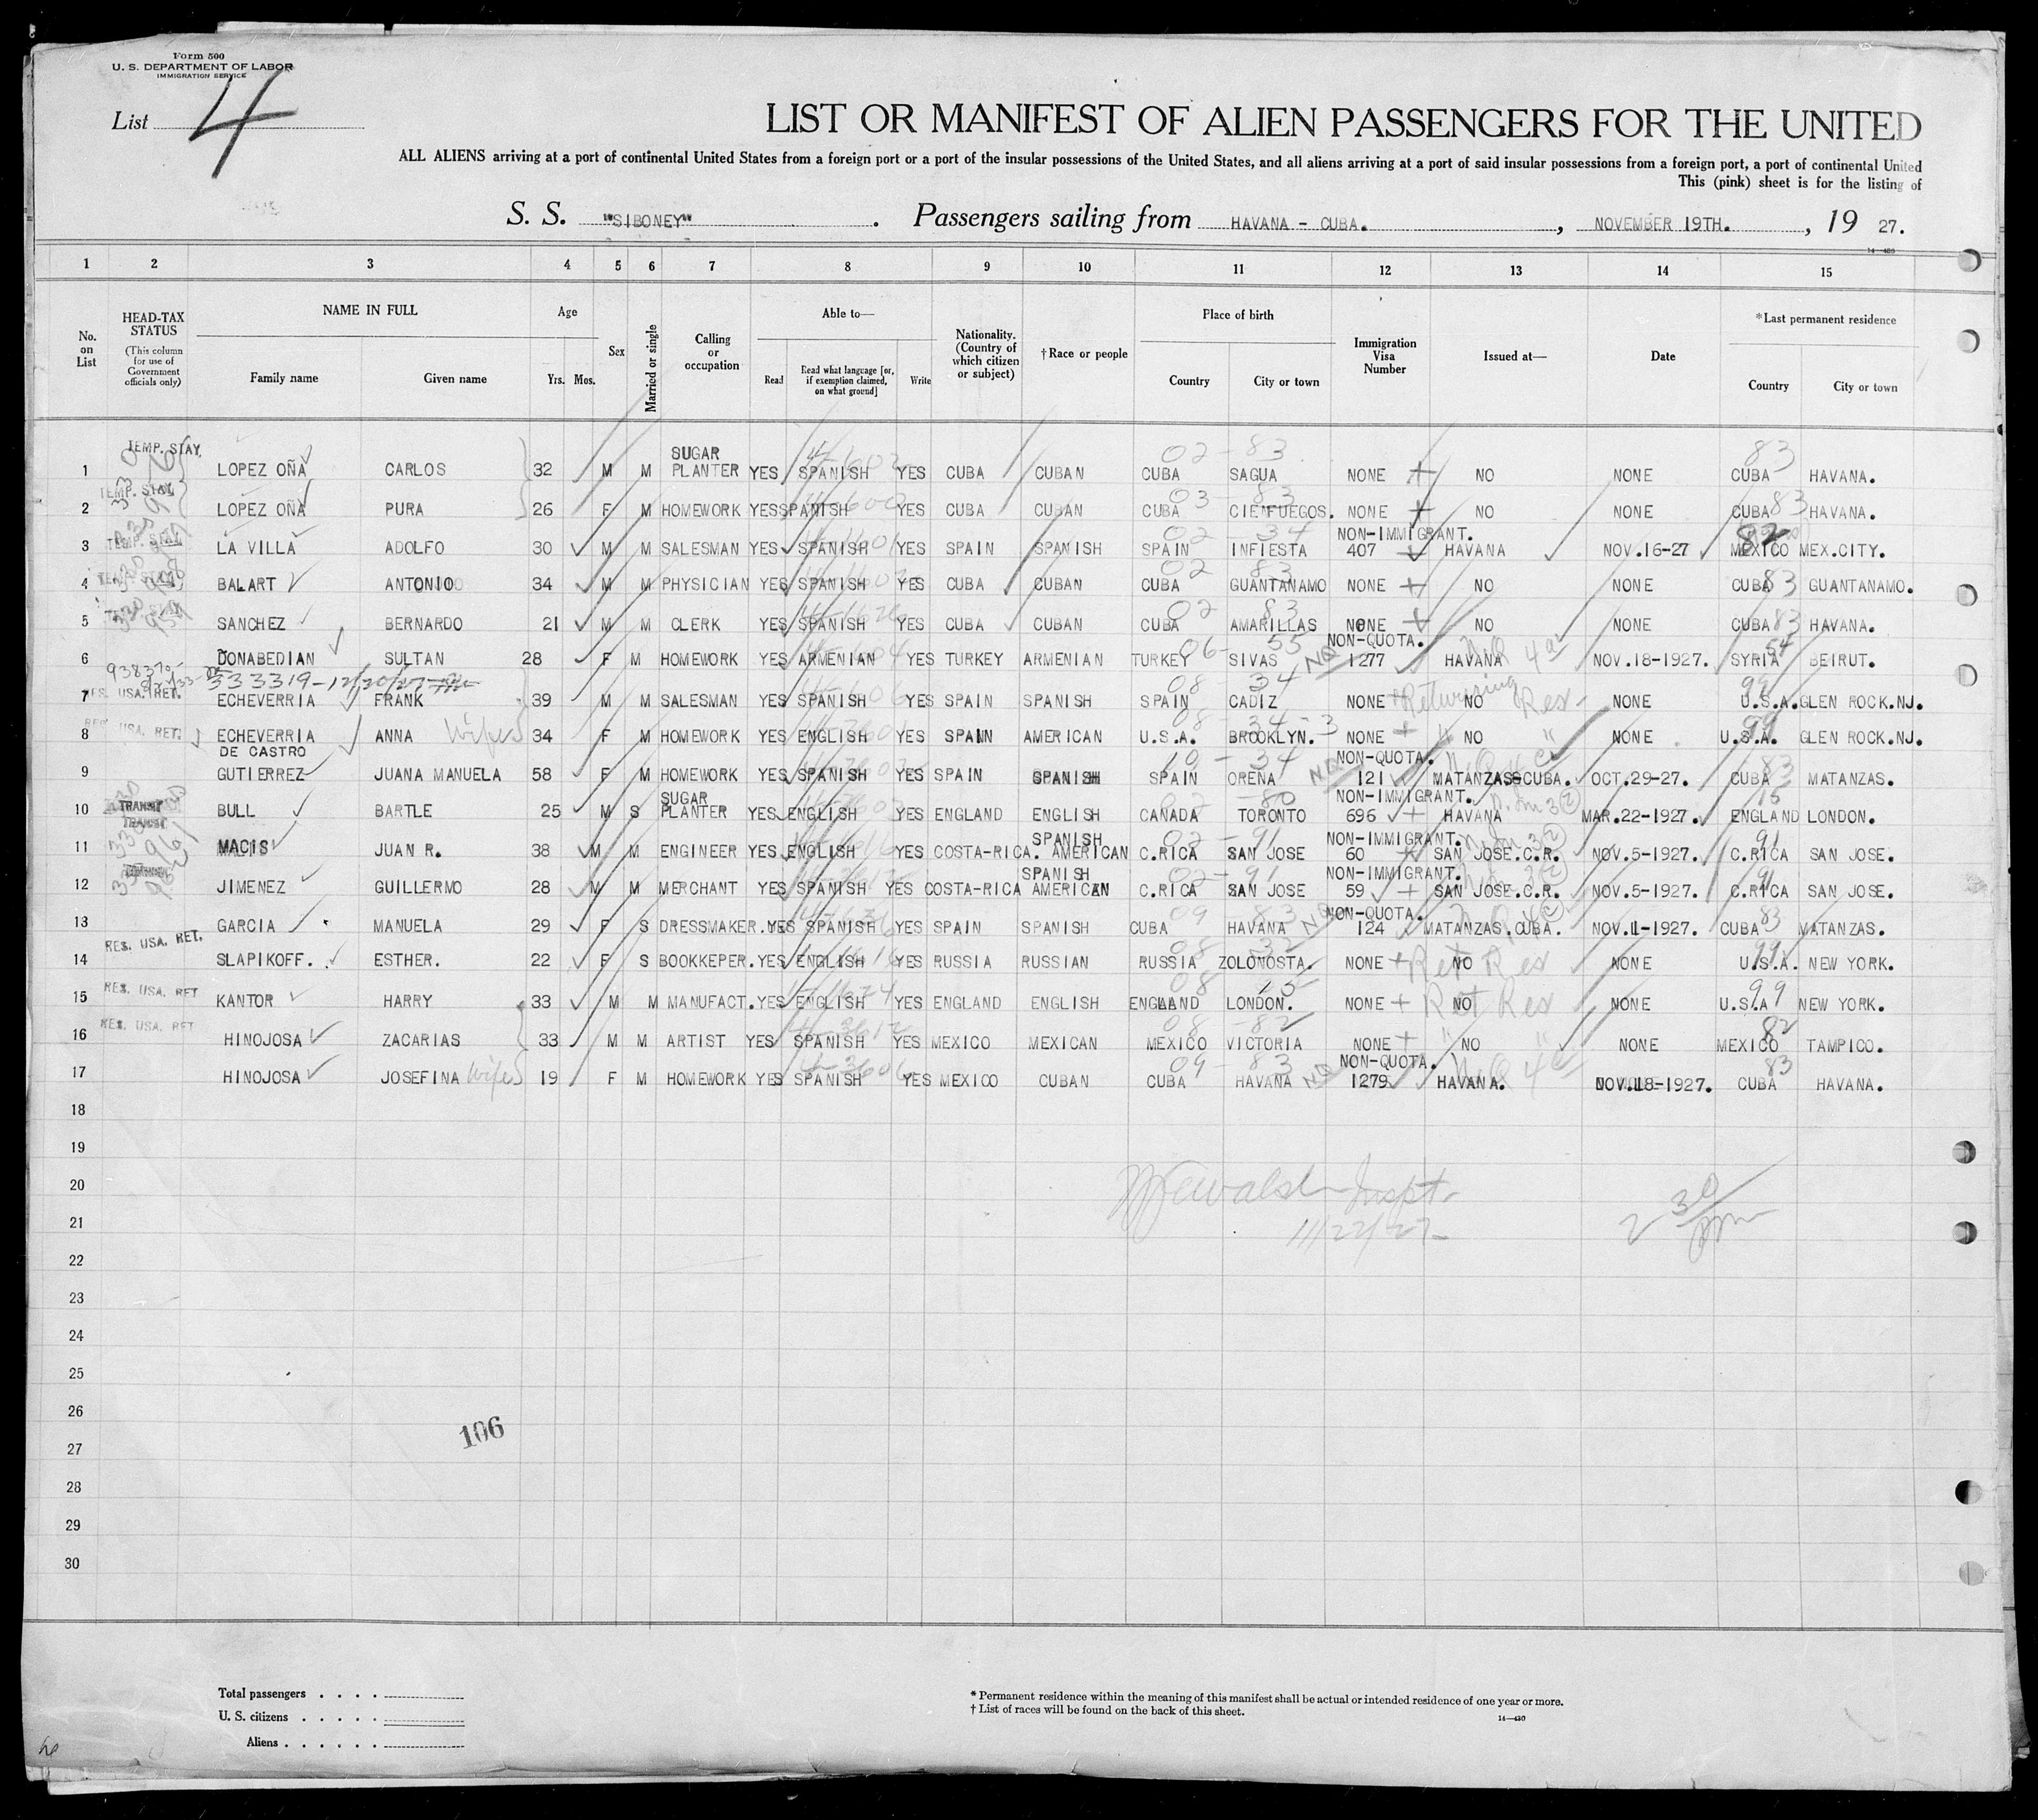 Form 500
U. S. DEPARTMENT OF LABOR
IMMIGRATION SERVICE
List 4
LIST OR MANIFEST OF ALIEN PASSENGERS FOR THE UNITED
ALL ALIENS arriving at a port of continental United States from a foreign port or a port of the insular possessions of the United States, and all aliens arriving at a port of said insular possessions from a foreign port, a port of continental United
This (pink) sheet is for the listing of
S. S. "SIBONEY". Passengers sailing from HAVANA - CUBA., NOVEMBER 19TH., 19 27.
14—430
1 2 3 4 5 6 7 8 9 10 11 12 13 14 15
No. on List
HEAD-TAX STATUS (This column for use of Government officials only)
NAME IN FULL Family name Given name
Age Yrs. Mos.
Sex
Married or single
Calling or occupation
Able to— Read Read what language [or, if exemption claimed, on what ground] Write
Nationality. (Country of which citizen or subject)
†Race or people
Place of birth Country City or town
Immigration Visa Number
Issued at—
Date
*Last permanent residence Country City or town
1 TEMP. STAY. LOPEZ OÑA CARLOS 32 M M SUGAR PLANTER YES SPANISH YES CUBA CUBAN CUBA SAGUA NONE NO NONE CUBA HAVANA. 02 - 83 83
2 TEMP. STAY LOPEZ OÑA PURA 26 F M HOMEWORK YES SPANISH YES CUBA CUBAN CUBA CIENFUEGOS. NONE NO NONE CUBA HAVANA. 03 - 83 83
3 TEMP. STAY LA VILLA ADOLFO 30 M M SALESMAN YES SPANISH YES SPAIN SPANISH SPAIN INFIESTA NON-IMMIGRANT. 407 HAVANA NOV.16-27 MEXICO MEX.CITY. 02 - 34 82
4 TEMP. STAY BALART ANTONIO 34 M M PHYSICIAN YES SPANISH YES CUBA CUBAN CUBA GUANTANAMO NONE NO NONE CUBA GUANTANAMO. 02 83 83
5 SANCHEZ BERNARDO 21 M M CLERK YES SPANISH YES CUBA CUBAN CUBA AMARILLAS NONE NO NONE CUBA HAVANA. 02 83 83
6 DONABEDIAN SULTAN 28 F M HOMEWORK YES ARMENIAN YES TURKEY ARMENIAN TURKEY SIVAS NON-QUOTA. 1277 HAVANA NOV.18-1927. SYRIA BEIRUT. 06- 55 NQ 54
333319-12/20/27
7 RES. USA. RET. ECHEVERRIA FRANK 39 M M SALESMAN YES SPANISH YES SPAIN SPANISH SPAIN CADIZ NONE NO NONE U.S.A. GLEN ROCK.NJ. 08 - 34 Returning Res- 99
8 RES. USA. RET. ECHEVERRIA ANNA Wife 34 F M HOMEWORK YES ENGLISH YES SPAIN AMERICAN U.S.A. BROOKLYN. NONE NO NONE U.S.A. GLEN ROCK.NJ. 08 - 34 - 3 " " 99
9 DE CASTRO GUTIERREZ JUANA MANUELA 58 F M HOMEWORK YES SPANISH YES SPAIN SPANISH SPAIN ORENA NON-QUOTA. 121 MATANZAS CUBA. OCT.29-27. CUBA MATANZAS. 34 NQ 83
10 TRANSIT BULL BARTLE 25 M S SUGAR PLANTER YES ENGLISH YES ENGLAND ENGLISH CANADA TORONTO NON-IMMIGRANT. 696 HAVANA MAR.22-1927. ENGLAND LONDON. 02 - 80 15
11 TRANSIT MACIS JUAN R. 38 M M ENGINEER YES ENGLISH YES COSTA-RICA. SPANISH AMERICAN C.RICA SAN JOSE NON-IMMIGRANT. 60 SAN JOSE.C.R. NOV.5-1927. C.RICA SAN JOSE. 02 - 91 91
12 JIMENEZ GUILLERMO 28 M M MERCHANT YES SPANISH YES COSTA-RICA SPANISH AMERICAN C.RICA SAN JOSE NON-IMMIGRANT. 59 SAN JOSE.C.R. NOV.5-1927. C.RICA SAN JOSE. 02 - 91 91
13 GARCIA MANUELA 29 F S DRESSMAKER. YES SPANISH YES SPAIN SPANISH CUBA HAVANA NON-QUOTA. 124 MATANZAS.CUBA. NOV.1-1927. CUBA MATANZAS. 09 - 83 NQ 83
14 RES. USA. RET. SLAPIKOFF. ESTHER. 22 F S BOOKKEPER. YES ENGLISH YES RUSSIA RUSSIAN RUSSIA ZOLONOSTA. NONE NO NONE U.S.A. NEW YORK. 08 32 Ret Res 99
15 RES. USA. RET KANTOR HARRY 33 M M MANUFACT. YES ENGLISH YES ENGLAND ENGLISH ENGLAND LONDON. NONE NO NONE U.S.A NEW YORK. 08 15 Ret Res 99
16 RES. USA. RET HINOJOSA ZACARIAS 33 M M ARTIST YES SPANISH YES MEXICO MEXICAN MEXICO VICTORIA NONE NO NONE MEXICO TAMPICO. 08 - 82 " " 82
17 HINOJOSA JOSEFINA Wife 19 F M HOMEWORK YES SPANISH YES MEXICO CUBAN CUBA HAVANA NON-QUOTA. 1279 HAVANA. NOV.18-1927. CUBA HAVANA. 09 - 83 NQ 83
18
19
20 Inspt.
21 11/22/27 2 30 pm
22
23
24
25
26
106
27
28
29
30
Total passengers . . . .
U. S. citizens . . . . .
Aliens . . . . . .
* Permanent residence within the meaning of this manifest shall be actual or intended residence of one year or more.
† List of races will be found on the back of this sheet.
14—430